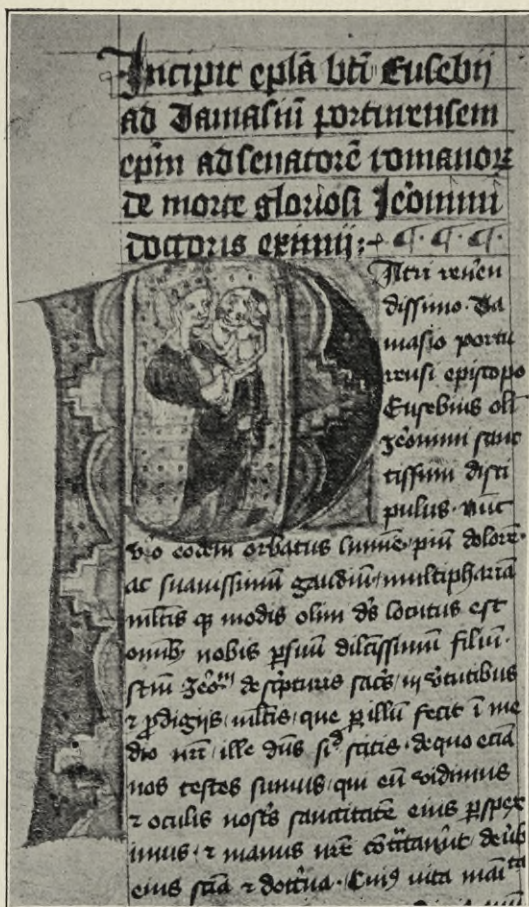 Incipit epl̄a bt̄i Eusebij
ad Damasiū portuensem
ep̄m ad senatorē romanoꝝ
de morte gloriosi Jeronimi
doctoris eximij:
Patri reuen
dissimo Da
masio portu
ensi episcopo
Eusebius oli
Jeronimi sanc
tissimi disci
pulus nūc
v̄o eodem orbatus lumīe piū dolorē
ac suauissimū gaudiū multiphariā
multis qꝫ modis olim ds̄ locutus est
omībꝫ nobis ꝑ suū dilcissimū filiū
scm̄ Jeo de sc̄pturis sacs̄ in v̄tutibus
⁊ ꝓdigijs multis que ꝑ illū fecit ī me
dio nr̄i ille dn̄s sic̄ scitis de quo eciā
nos testes sumus qui eū vidimus
⁊ oculis nostꝭ sanctitatē eius ꝑspex
imus ⁊ manus nr̄e
eius sc̄ia ⁊ doctr̄ina Cuiꝰ vita